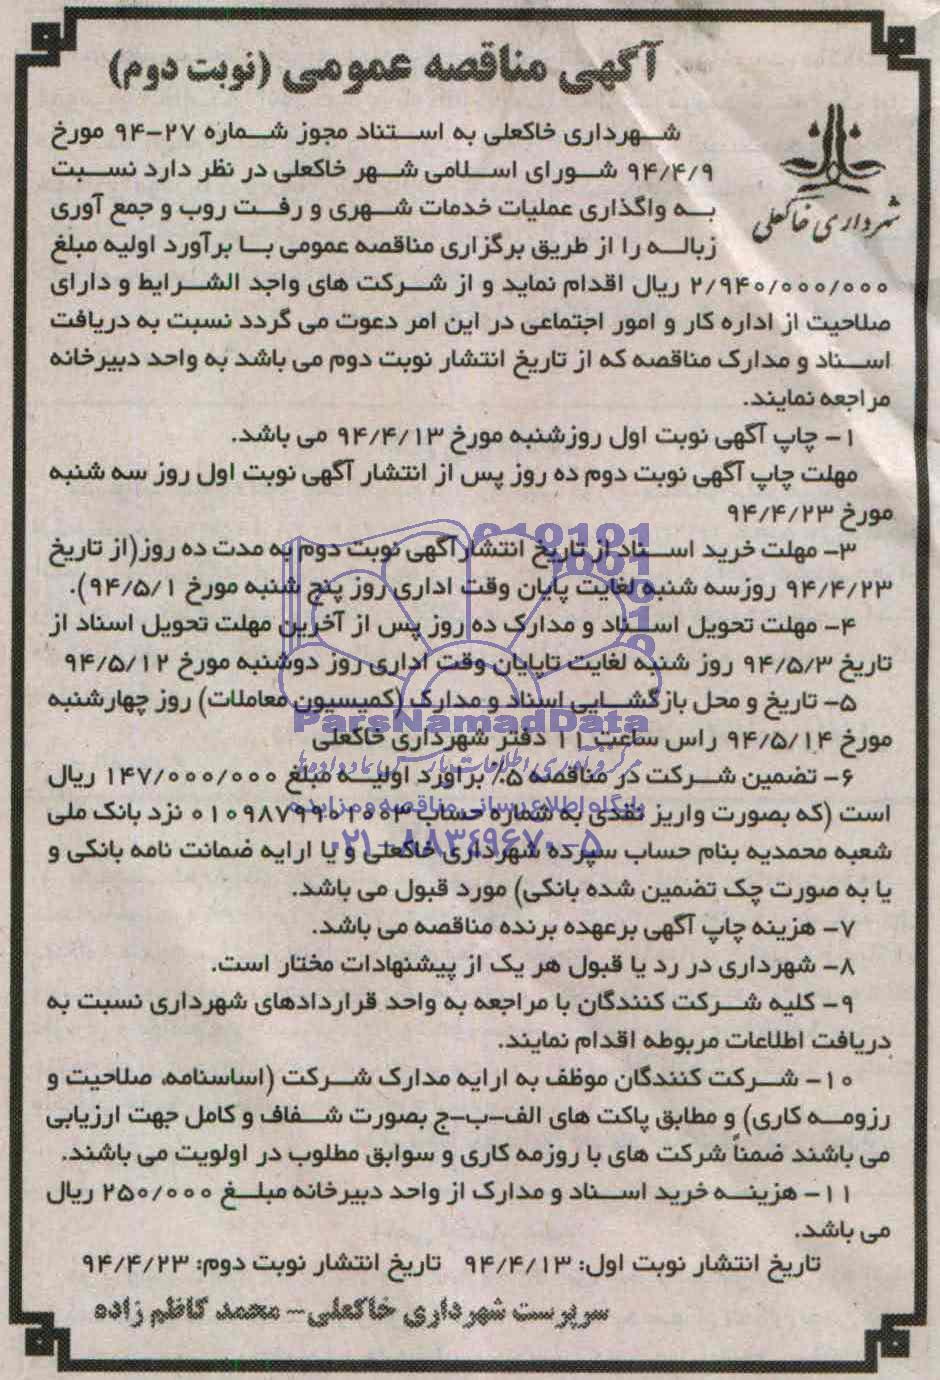 آگهی مناقصه عمومی (نوبت دوم)
شهرداری خاکعلی
شهرداری خاکعلی به استناد مجوز شماره ۲۷-۹۴ مورخ
۹۴/۴/۹ شورای اسلامی شهر خاکعلی در نظر دارد نسبت
به واگذاری عملیات خدمات شهری و رفت روب و جمع آوری
زباله را از طریق برگزاری مناقصه عمومی با برآورد اولیه مبلغ
۲/۹۴۰/۰۰۰/۰۰۰ ریال اقدام نماید و از شرکت های واجد الشرایط و دارای
صلاحیت از اداره کار و امور اجتماعی در این امر دعوت می گردد نسبت به دریافت
اسناد و مدارک مناقصه که از تاریخ انتشار نوبت دوم می باشد به واحد دبیرخانه
مراجعه نمایند.
۱- چاپ آگهی نوبت اول روزشنبه مورخ ۹۴/۴/۱۳ می باشد.
مهلت چاپ آگهی نوبت دوم ده روز پس از انتشار آگهی نوبت اول روز سه شنبه
مورخ ۹۴/۴/۲۳
۳- مهلت خرید اسناد از تاریخ انتشارآگهی نوبت دوم به مدت ده روز(از تاریخ
۹۴/۴/۲۳ روزسه شنبه لغایت پایان وقت اداری روز پنج شنبه مورخ ۹۴/۵/۱).
۴- مهلت تحویل اسناد و مدارک ده روز پس از آخرین مهلت تحویل اسناد از
تاریخ ۹۴/۵/۳ روز شنبه لغایت تاپایان وقت اداری روز دوشنبه مورخ ۹۴/۵/۱۲
۵- تاریخ و محل بازگشایی اسناد و مدارک (کمیسیون معاملات) روز چهارشنبه
مورخ ۹۴/۵/۱۴ راس ساعت ۱۱ دفتر شهرداری خاکعلی
۶- تضمین شرکت در مناقصه ۵٪ برآورد اولیه مبلغ ۱۴۷/۰۰۰/۰۰۰ ریال
است (که بصورت واریز نقدی به شماره حساب ۰۱۰۹۸۷۹۹۰۱۰۰۳ نزد بانک ملی
شعبه محمدیه بنام حساب سپرده شهرداری خاکعلی و یا ارایه ضمانت نامه بانکی و
یا به صورت چک تضمین شده بانکی) مورد قبول می باشد.
۷- هزینه چاپ آگهی برعهده برنده مناقصه می باشد.
۸- شهرداری در رد یا قبول هر یک از پیشنهادات مختار است.
۹- کلیه شرکت کنندگان با مراجعه به واحد قراردادهای شهرداری نسبت به
دریافت اطلاعات مربوطه اقدام نمایند.
۱۰- شرکت کنندگان موظف به ارایه مدارک شرکت (اساسنامه، صلاحیت و
رزومه کاری) و مطابق پاکت های الف-ب-ج بصورت شفاف و کامل جهت ارزیابی
می باشند ضمناً شرکت های با روزمه کاری و سوابق مطلوب در اولویت می باشند.
۱۱- هزینه خرید اسناد و مدارک از واحد دبیرخانه مبلغ ۲۵۰/۰۰۰ ریال
می باشد.
تاریخ انتشار نوبت اول: ۹۴/۴/۱۳ تاریخ انتشار نوبت دوم: ۹۴/۴/۲۳
سرپرست شهرداری خاکعلی- محمد کاظم زاده
ParsNamadData
پایگاه اطلاع رسانی مناقصه و مزایده
۰۲۱-۸۸۳۴۹۶۷۰-۵